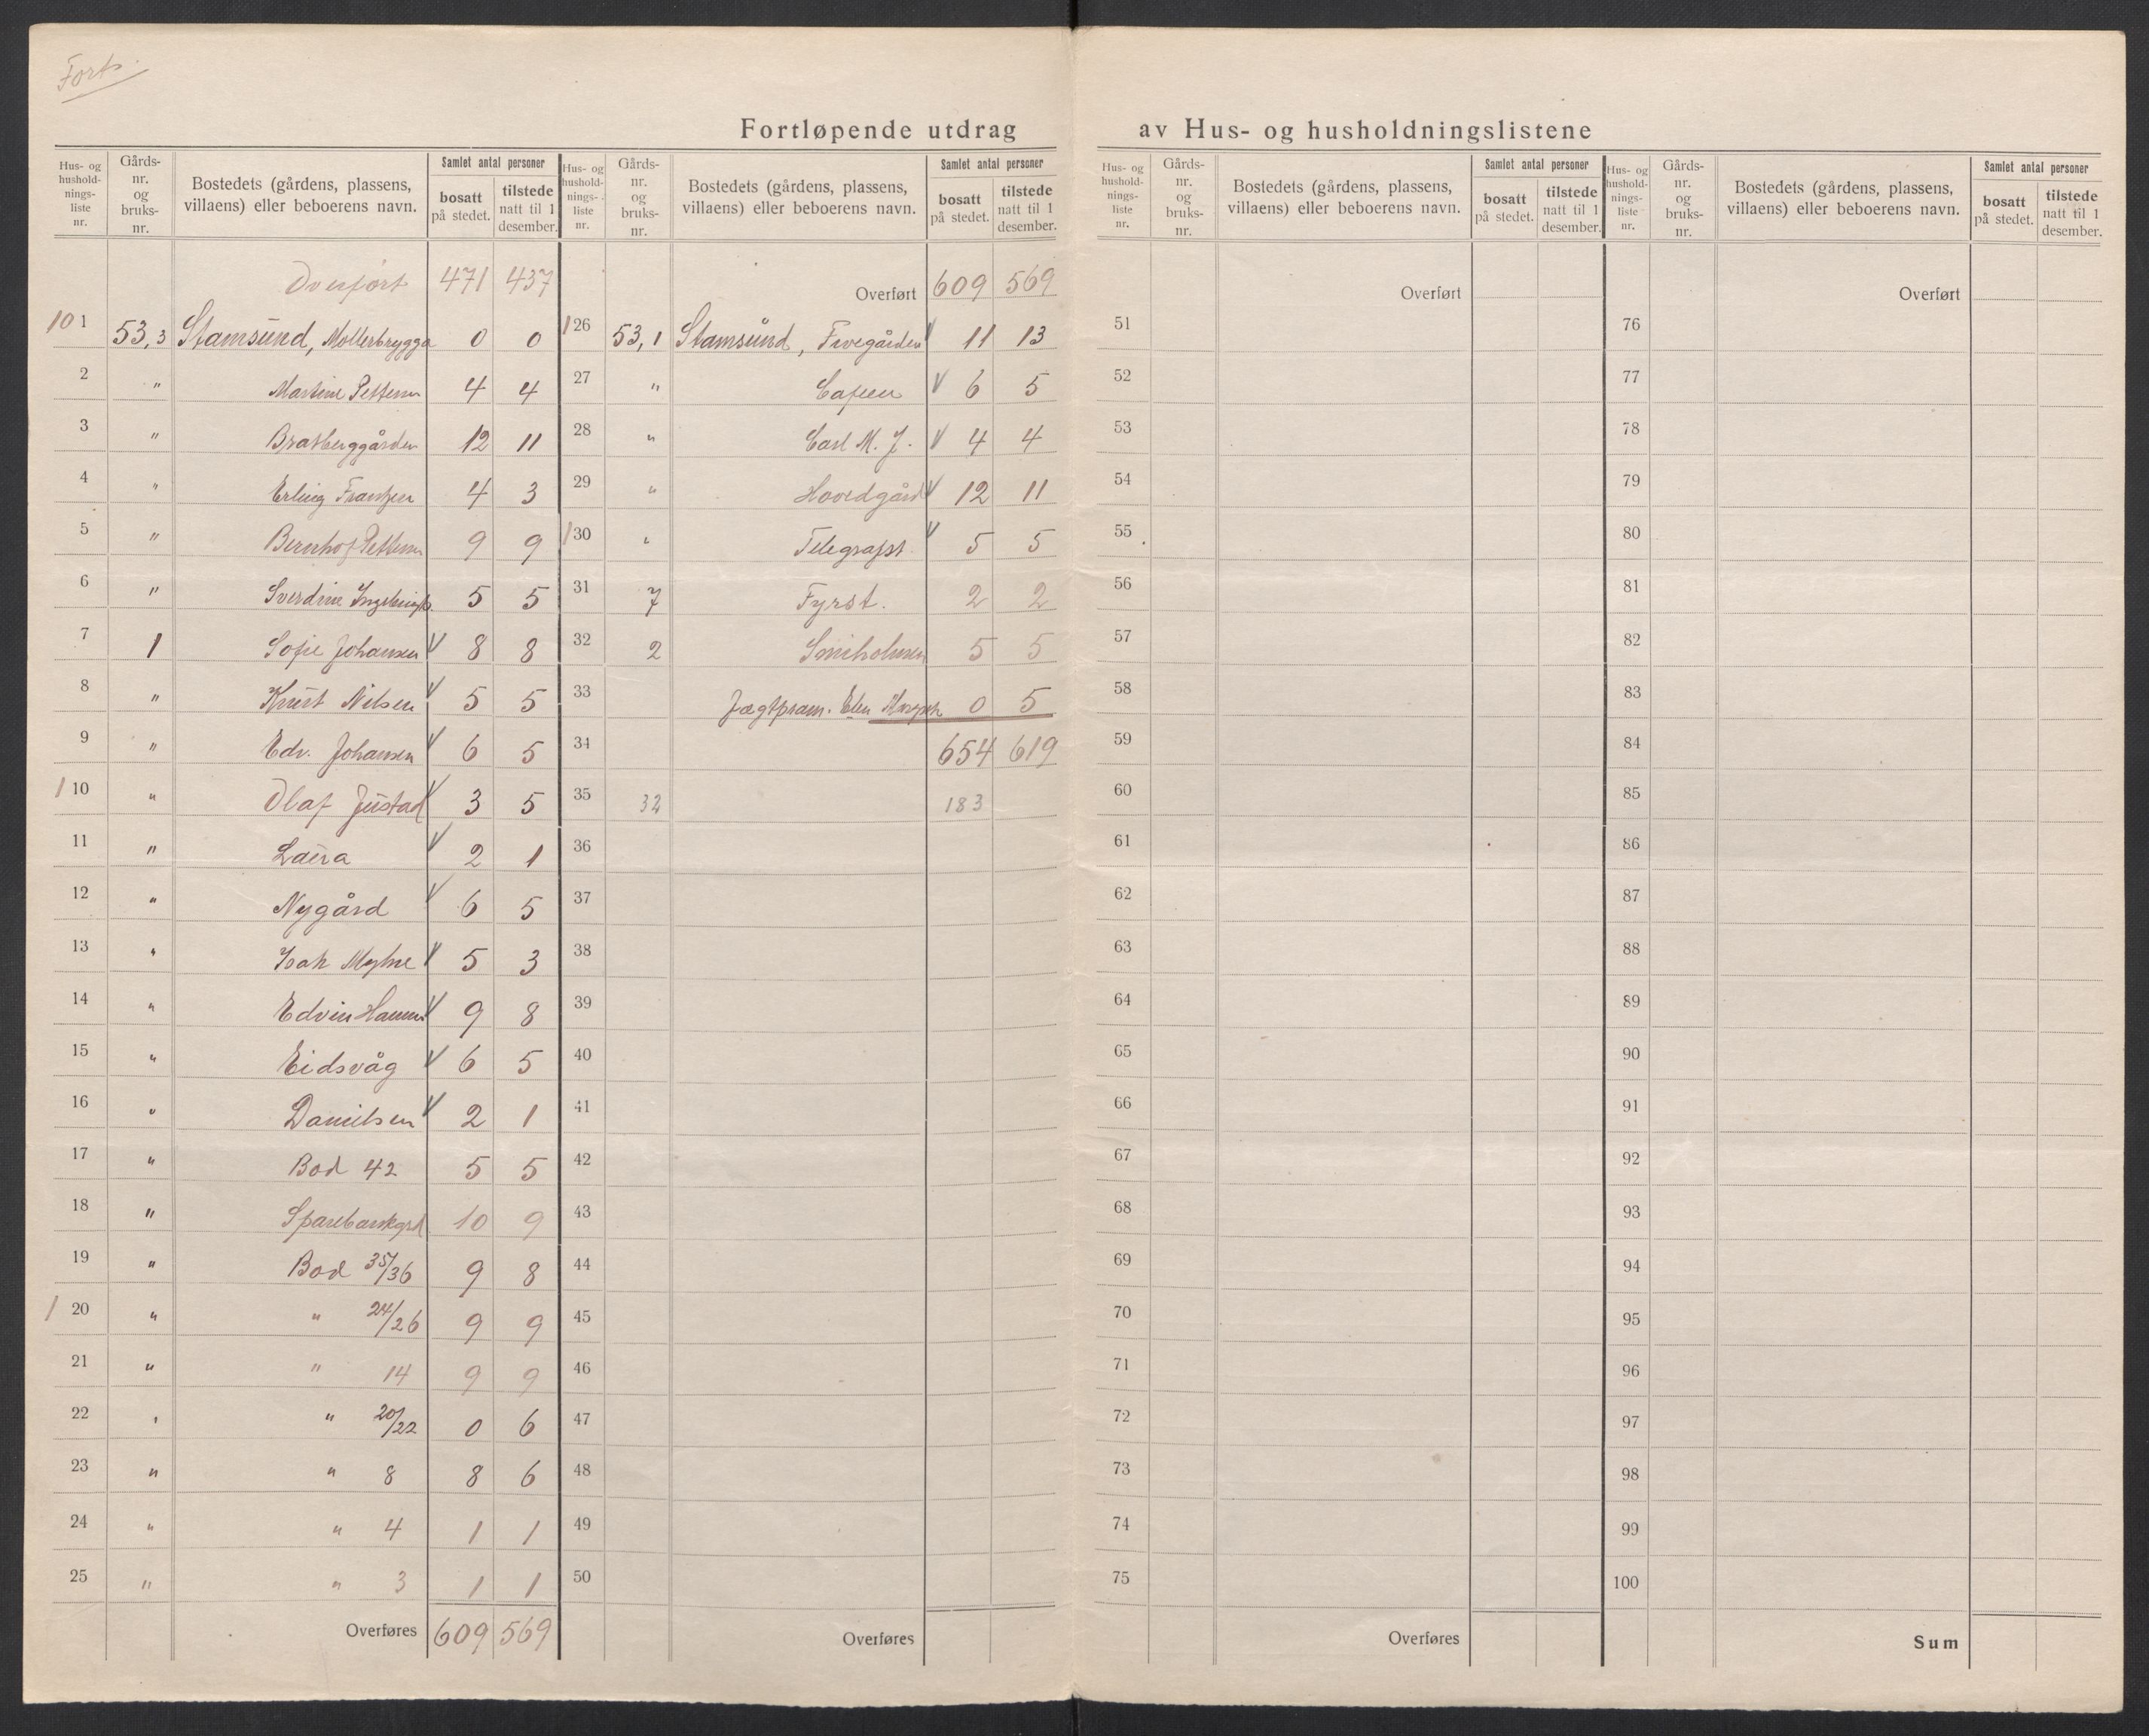 Forts.
Fortløpende utdrag av Hus- og husholdningslistene
Hus- og husholdnings-liste nr. Gårds-nr. og bruks-nr. Bostedets (gårdens, plassens, villaens) eller beboerens navn. Samlet antal personer bosatt på stedet. tilstede natt til 1 desember.
Overført 471 437
101 53,3 Stamsund, Mollerbrygga 0 0
2 " Martine Pettersen 4 4
3 " Bratberggården 12 11
4 " Erling Frantzen 4 3
5 " Bernhof Pettersen 9 9
6 " Sverdrine 5 5
7 1 Sofie Johansen V 8 8
8 " Knut Nilsen V 5 5
9 " Edv. Johansen V 6 5
110 " Olaf Justad V 3 5
11 " Laura V 2 1
12 " Nygård V 6 5
13 " Isak Myhre V 5 3
14 " Edvin Hansen V 9 8
15 " Eidsvåg V 6 5
16 " Danielsen V 2 1
17 " Bod 42 5 5
18 " Sparebankgrd 10 9
19 " Bod 35/36 9 8
120 " " 24/26 9 9
21 " " 14 9 9
22 " " 20/22 0 6
23 " " 8 8 6
24 " " 4 1 1
25 " " 3 1 1
Overføres 609 569
Hus- og husholdnings-liste nr. Gårds-nr. og bruks-nr. Bostedets (gårdens, plassens, villaens) eller beboerens navn. Samlet antal personer bosatt på stedet. tilstede natt til 1 desember.
Overført 609 569
126 53,1 Stamsund, V 11 13
27 " Cafeen V 6 5
28 " Carl M. J. V 4 4
29 " Hovedgård V 12 11
130 " Telegrafst V 5 5
31 7 Fyrst. 2 2
32 2 5 5
33 Jægtpram. 0 5
34 654 619
35 32 183
36
37
38
39
40
41
42
43
44
45
46
47
48
49
50
Overføres
Hus- og husholdnings-liste nr. Gårds-nr. og bruks-nr. Bostedets (gårdens, plassens, villaens) eller beboerens navn. Samlet antal personer bosatt på stedet. tilstede natt til 1 desember.
Overført
51
52
53
54
55
56
57
58
59
60
61
62
63
64
65
66
67
68
69
70
71
72
73
74
75
Overføres
Hus- og husholdnings-liste nr. Gårds-nr. og bruks-nr. Bostedets (gårdens, plassens, villaens) eller beboerens navn. Samlet antal personer bosatt på stedet. tilstede natt til 1 desember.
Overført
76
77
78
79
80
81
82
83
84
85
86
87
88
89
90
91
92
93
94
95
96
97
98
99
100
Sum